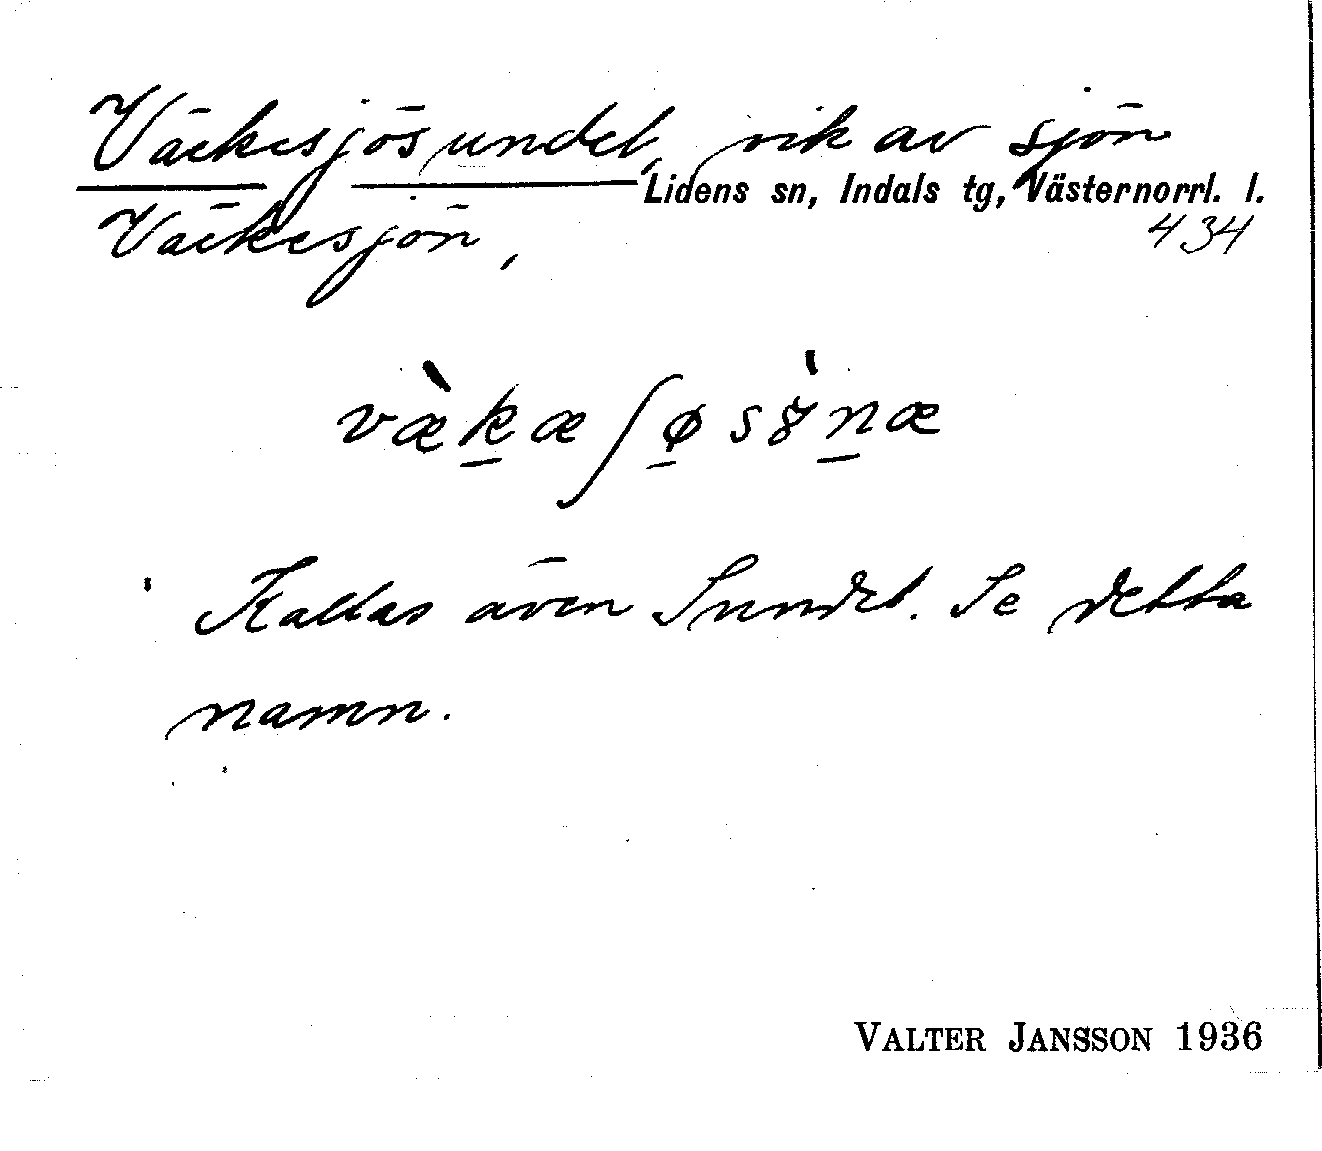 Väckesjösundet, vik av sjön
Lidens sn, Indals tg, Västernorrl. l.
Väckesjön,
434
væ̀k̠æʃø̠sɤ̀n̠æ
Kallas även Sundet. Se detta
namn.
VALTER JANSSON 1936